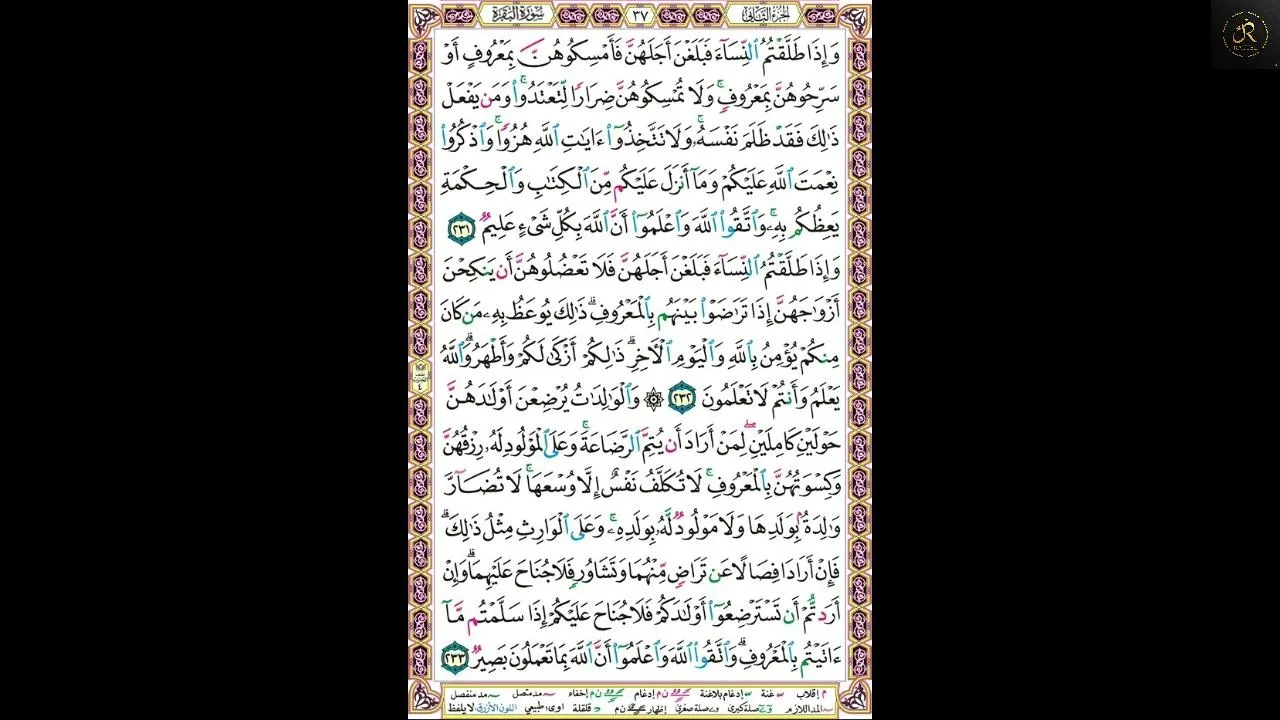 الجزء الثاني ٣٧ سورة البقرة
وَإِذَا طَلَّقۡتُمُ ٱلنِّسَآءَ فَبَلَغۡنَ أَجَلَهُنَّ فَأَمۡسِكُوهُنَّ بِمَعۡرُوفٍ أَوۡ
سَرِّحُوهُنَّ بِمَعۡرُوفٖۚ وَلَا تُمۡسِكُوهُنَّ ضِرَارٗا لِّتَعۡتَدُواْۚ وَمَن يَفۡعَلۡ
ذَٰلِكَ فَقَدۡ ظَلَمَ نَفۡسَهُۥۚ وَلَا تَتَّخِذُوٓاْ ءَايَٰتِ ٱللَّهِ هُزُوٗاۚ وَٱذۡكُرُواْ
نِعۡمَتَ ٱللَّهِ عَلَيۡكُمۡ وَمَآ أَنزَلَ عَلَيۡكُم مِّنَ ٱلۡكِتَٰبِ وَٱلۡحِكۡمَةِ
يَعِظُكُم بِهِۦۚ وَٱتَّقُواْ ٱللَّهَ وَٱعۡلَمُوٓاْ أَنَّ ٱللَّهَ بِكُلِّ شَيۡءٍ عَلِيمٞ ٢٣١
وَإِذَا طَلَّقۡتُمُ ٱلنِّسَآءَ فَبَلَغۡنَ أَجَلَهُنَّ فَلَا تَعۡضُلُوهُنَّ أَن يَنكِحۡنَ
أَزۡوَٰجَهُنَّ إِذَا تَرَٰضَوۡاْ بَيۡنَهُم بِٱلۡمَعۡرُوفِۗ ذَٰلِكَ يُوعَظُ بِهِۦ مَن كَانَ
مِنكُمۡ يُؤۡمِنُ بِٱللَّهِ وَٱلۡيَوۡمِ ٱلۡأٓخِرِۗ ذَٰلِكُمۡ أَزۡكَىٰ لَكُمۡ وَأَطۡهَرُۚ وَٱللَّهُ
يَعۡلَمُ وَأَنتُمۡ لَا تَعۡلَمُونَ ٢٣٢ ۞ وَٱلۡوَٰلِدَٰتُ يُرۡضِعۡنَ أَوۡلَٰدَهُنَّ
حَوۡلَيۡنِ كَامِلَيۡنِۖ لِمَنۡ أَرَادَ أَن يُتِمَّ ٱلرَّضَاعَةَۚ وَعَلَى ٱلۡمَوۡلُودِ لَهُۥ رِزۡقُهُنَّ
وَكِسۡوَتُهُنَّ بِٱلۡمَعۡرُوفِۚ لَا تُكَلَّفُ نَفۡسٌ إِلَّا وُسۡعَهَاۚ لَا تُضَآرَّ
وَٰلِدَةُۢ بِوَلَدِهَا وَلَا مَوۡلُودٞ لَّهُۥ بِوَلَدِهِۦۚ وَعَلَى ٱلۡوَارِثِ مِثۡلُ ذَٰلِكَۗ
فَإِنۡ أَرَادَا فِصَالًا عَن تَرَاضٖ مِّنۡهُمَا وَتَشَاوُرٖ فَلَا جُنَاحَ عَلَيۡهِمَاۗ وَإِنۡ
أَرَدتُّمۡ أَن تَسۡتَرۡضِعُوٓاْ أَوۡلَٰدَكُمۡ فَلَا جُنَاحَ عَلَيۡكُمۡ إِذَا سَلَّمۡتُم مَّآ
ءَاتَيۡتُم بِٱلۡمَعۡرُوفِۗ وَٱتَّقُواْ ٱللَّهَ وَٱعۡلَمُوٓاْ أَنَّ ٱللَّهَ بِمَا تَعۡمَلُونَ بَصِيرٞ ٢٣٣
م إقلاب غنة إدغام بلاغنة ن م إدغام ن م إخفاء مد متصل مد منفصل
المد اللازم صلة كبرى صلة صغرى إظهار ن م قلقلة اوى طبيعي اللون الأزرق لا يلفظ